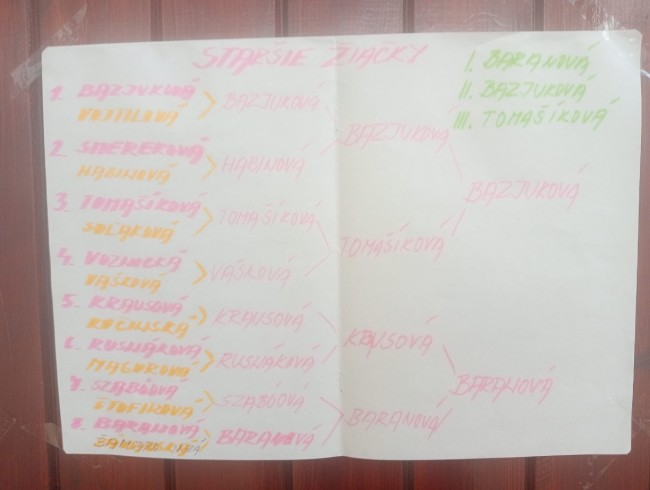 STARŠIE ŽIAČKY
I. BARANOVÁ
II. BAZJUKOVÁ
III. TOMAŠÍKOVÁ
1. BAZJUKOVÁ
2. SMEREKOVÁ
HABINOVÁ
3. TOMAŠÍKOVÁ
SOĽAKOVÁ
4. VOZNICKÁ
VAŠKOVÁ
5. KRAUSOVÁ
6. RUSNÁKOVÁ
MAGUROVÁ
7. SZABÓOVÁ
ŠTOFIROVÁ
8. BARANOVÁ
BAZJUKOVÁ
HABINOVÁ
TOMAŠÍKOVÁ
VAŠKOVÁ
KRAUSOVÁ
RUSNÁKOVÁ
SZABÓOVÁ
BARANOVÁ
BAZJUKOVÁ
TOMAŠÍKOVÁ
KRAUSOVÁ
BARANOVÁ
BAZJUKOVÁ
BARANOVÁ